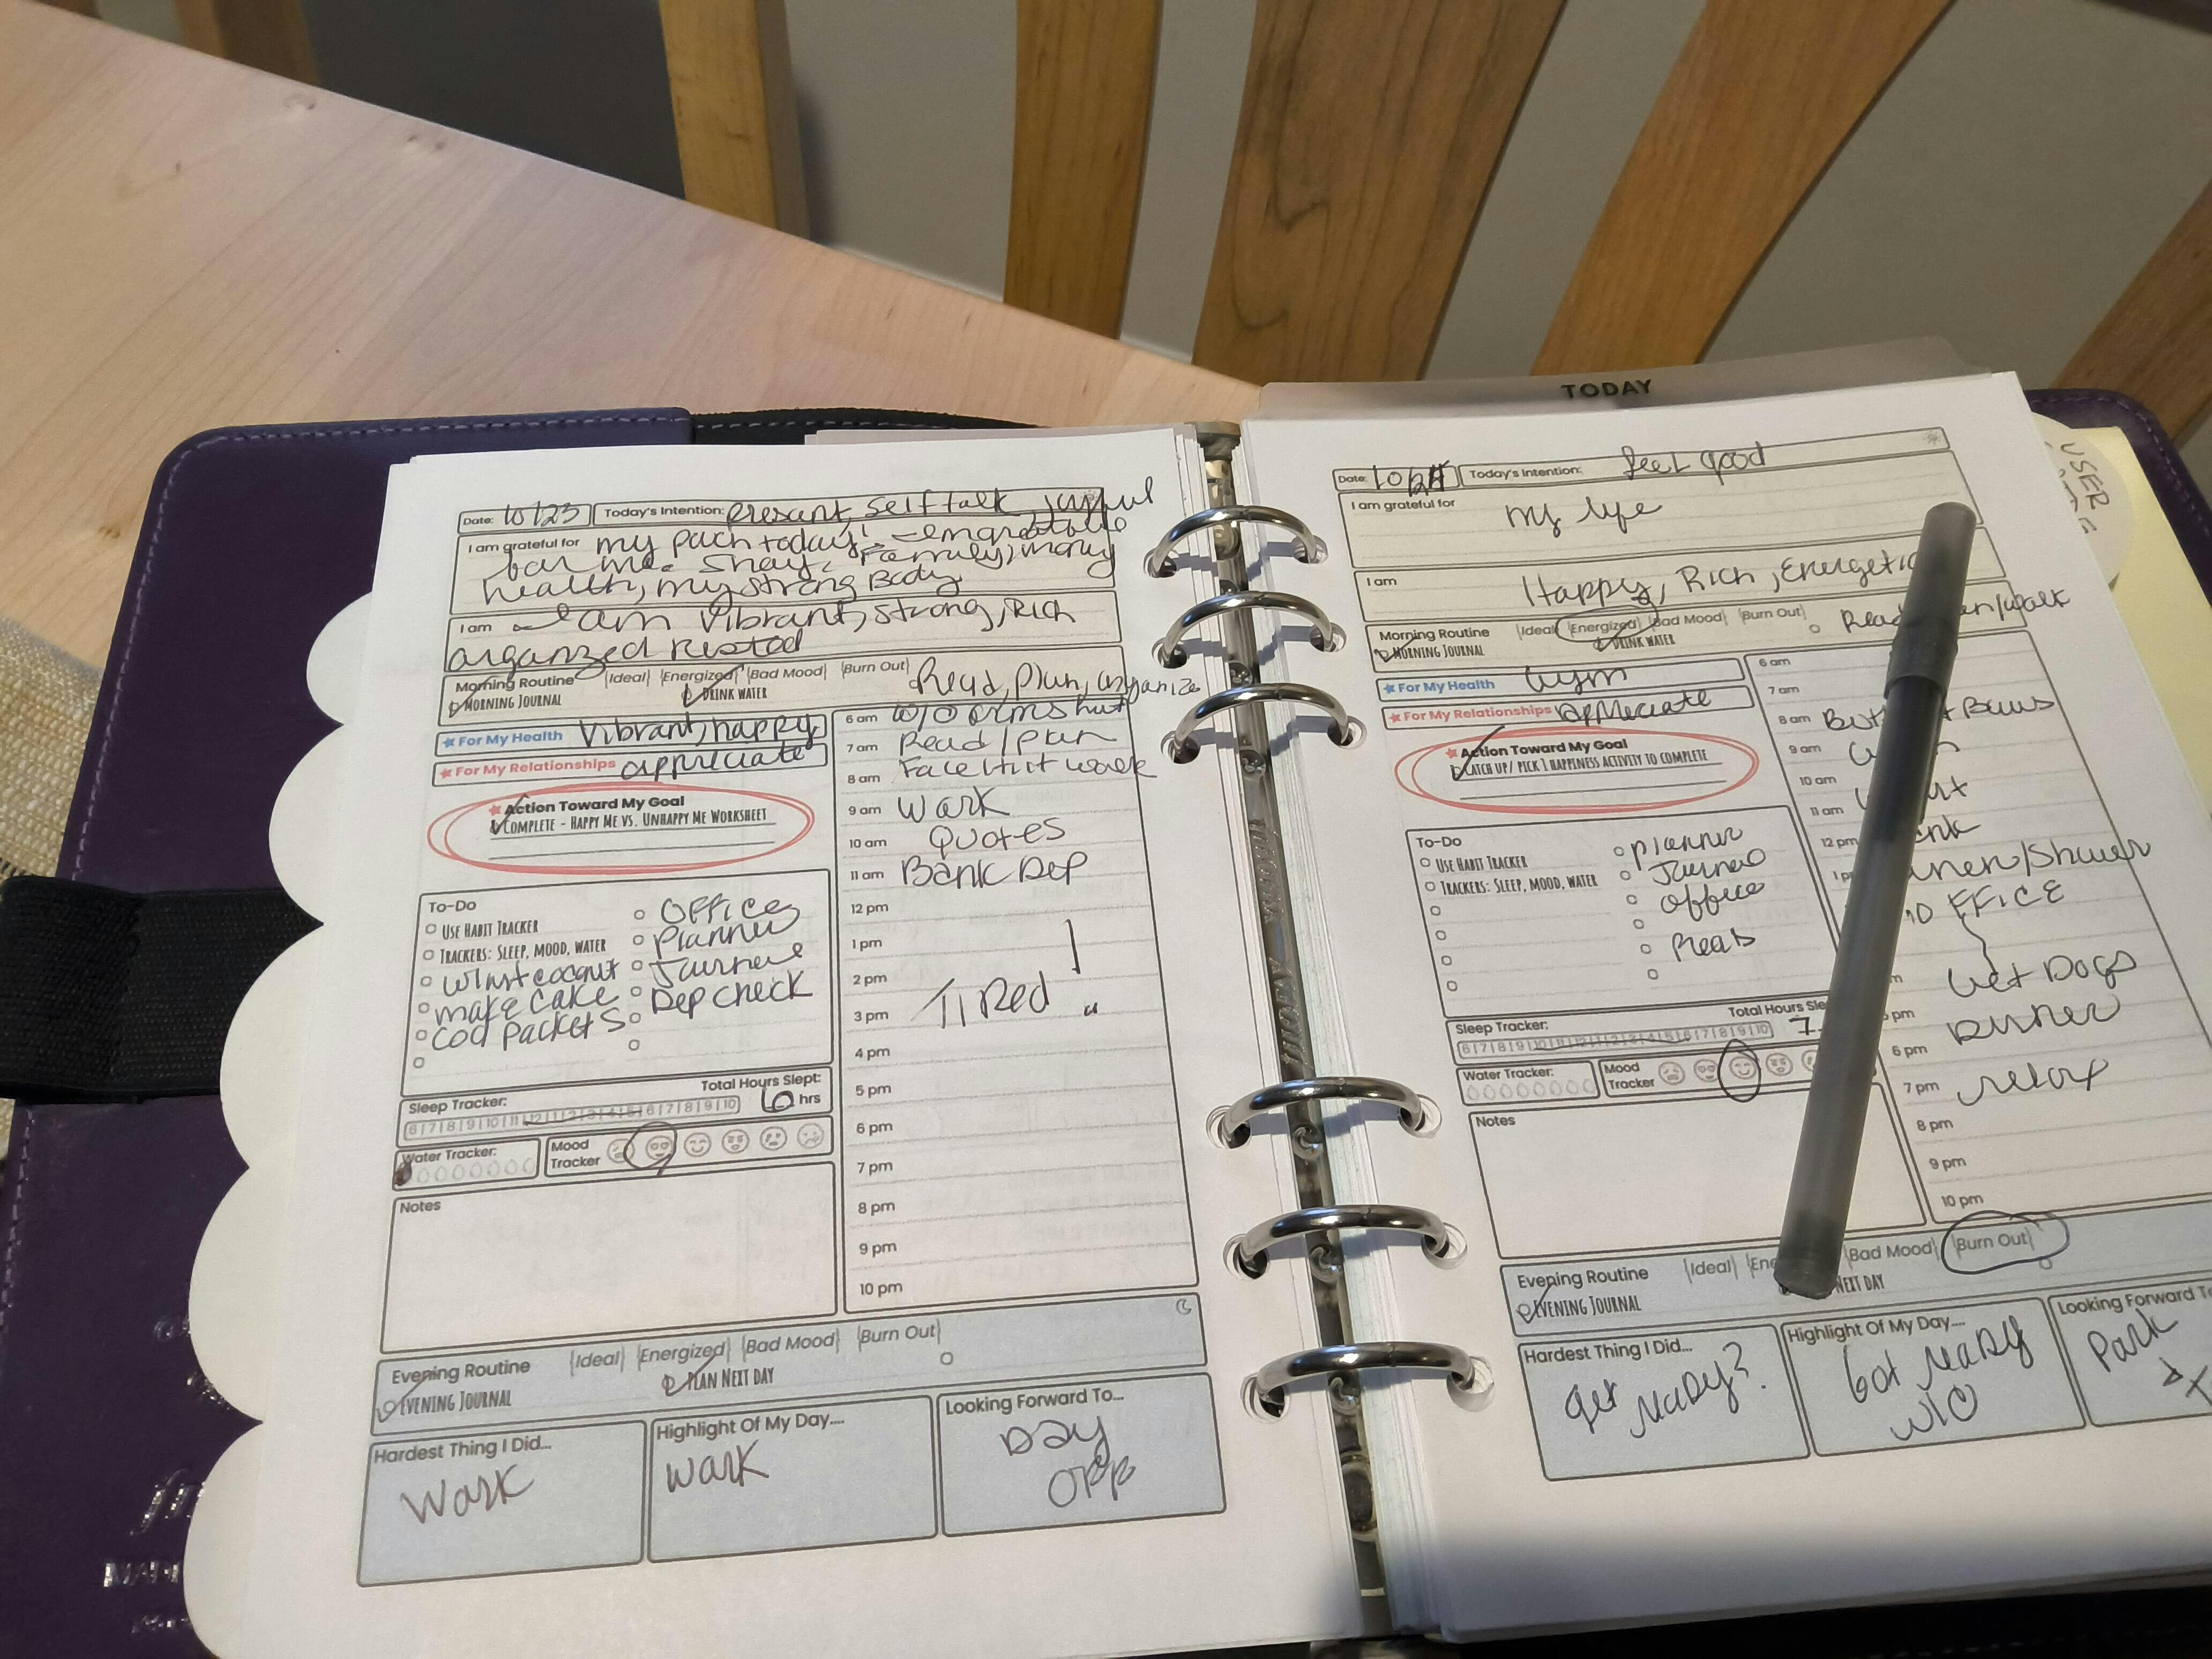 TODAY
USER
Date: 10/23 Today's Intention: Present, Self talk, joyful
I am grateful for my pach today!
for me. Shay, Family, money
health, my strong Body
I am I am Vibrant, Strong, Rich
organized rested
Morning Routine |Ideal| |Energized| |Bad Mood| |Burn Out| Read, plan, organize
MORNING JOURNAL DRINK WATER
For My Health Vibrant, happy
For My Relationships appriciate
Action Toward My Goal
COMPLETE - HAPPY ME VS. UNHAPPY ME WORKSHEET
To-Do
USE HABIT TRACKER
TRACKERS: SLEEP, MOOD, WATER
make cake
COd Packets
Office
Planner
Journal
Dep check
6 am W/O arms
7 am Read / plan
8 am work
9 am Work
10 am Quotes
11 am Bank Dep
12 pm
1 pm
2 pm
3 pm TIRed!
4 pm
5 pm
6 pm
7 pm
8 pm
9 pm
10 pm
Sleep Tracker: Total Hours Slept:
6|7|8|9|10|11|12|1|2|3|4|5|6|7|8|9|10 6 hrs
Water Tracker: Mood Tracker
Notes
Evening Routine |Ideal| |Energized| |Bad Mood| |Burn Out|
EVENING JOURNAL PLAN NEXT DAY
Hardest Thing I Did...
Work
Highlight Of My Day....
Work
Looking Forward To...
Day
OPP
Date: 10/24 Today's Intention: feel good
I am grateful for my life
I am Happy, Rich, Energetic
Morning Routine |Ideal| |Energized| |Bad Mood| |Burn Out| Read /Walk
MORNING JOURNAL DRINK WATER
For My Health Gym
For My Relationships appreciate
Action Toward My Goal
CATCH UP/ PICK 1 HAPPINESS ACTIVITY TO COMPLETE
To-Do
USE HABIT TRACKER
TRACKERS: SLEEP, MOOD, WATER
Planner
Journal
office
6 am
7 am
8 am
9 am
10 am
11 am
12 pm
/Shower
OFFICE
Dogs
Dinner
6 pm
7 pm relax
8 pm
9 pm
10 pm
Sleep Tracker: Total Hours
6|7|8|9|10|11|12|1|2|3|4|5|6|7|8|9|10 7
Water Tracker: Mood Tracker
Notes
Evening Routine |Ideal| |Bad Mood| |Burn Out|
EVENING JOURNAL NEXT DAY
Hardest Thing I Did...
get ready?
Highlight Of My Day....
Got ready
W/O
Looking Forward
Park